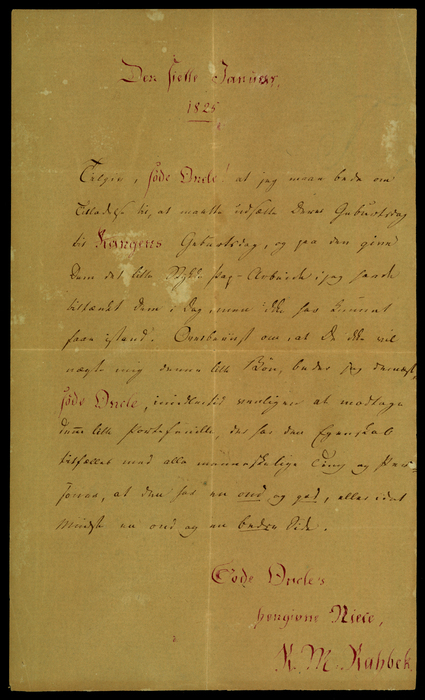 Den siette Januar,
1825
Tilgiv, søde Oncle! at jeg maae bede om
Tilladelse til, at maatte udsætte Deres Geburtsdag
til Kongens Geburtsdag, og paa den give
Dem det lille Stykke Arbeide, jeg havde
tiltænkt Dem i Dag, men ikke har kunnet
faae istand. Overbeviist om, at De ikke vil
nægte mig denne lille Bøn, beder jeg dernæst,
søde Oncle, imidlertid venligen at modtage
denne lille Portefeuille, der har den Egenskab
tilfælles med alle menneskelige Ting og Per-
soner, at den har en ond og god, eller i det
mindste en ond og en bedre Side.
Søde Oncle's
hengivne Niece,
K. M. Rahbek